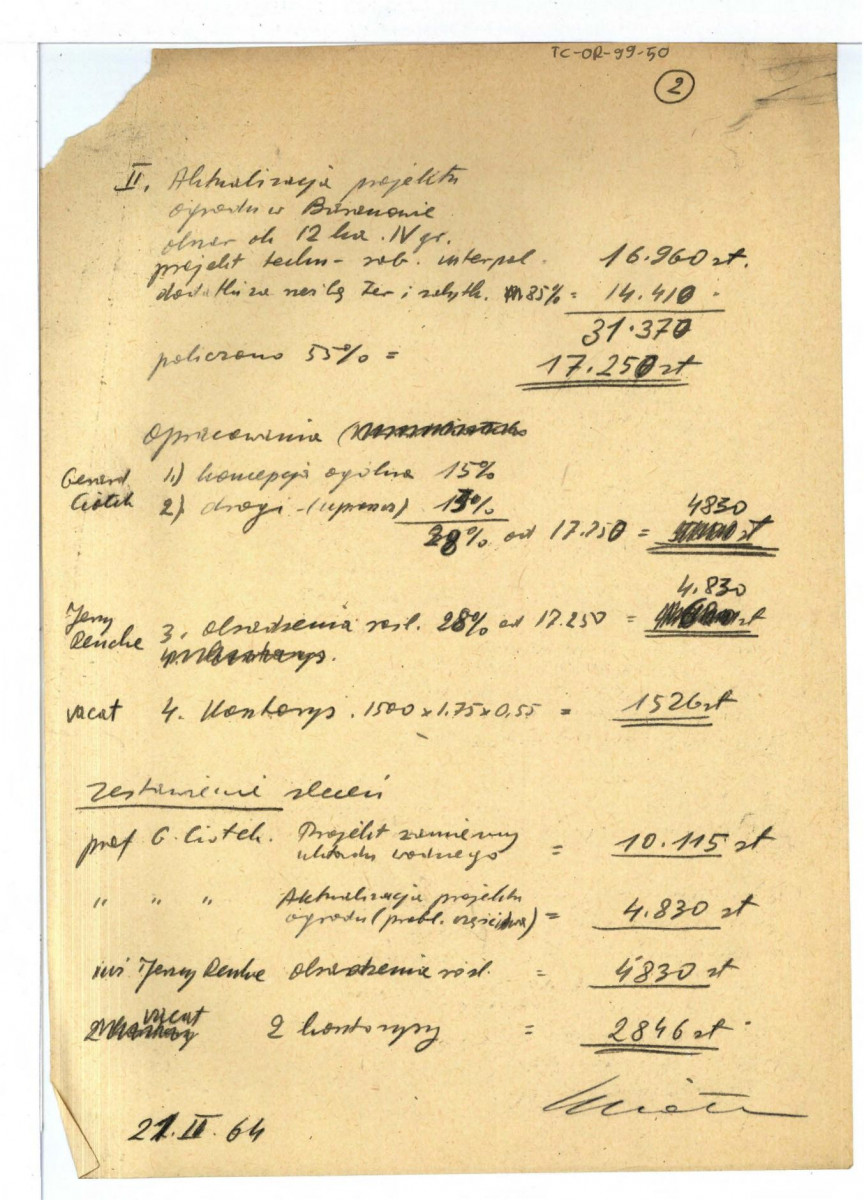 TC-OR-99-50
2
II. Aktualizacja projektu
ogrodu w Baranowie
obszar ok 12 ha. IV gr.
projekt techn - rob. interpol. 16.960 zł.
dodatki za rzeźbę ter i zabytk. 85% = 14.410
31.370
policzono 55% = 17.250 zł
Opracowania
Gerard 1.) koncepcja ogólna 15%
Ciołek 2) drogi - 13%
28% od 17.250 = 4830 zł
Jerzy
3. obsadzenia rośl. 28% od 17.250 = 4.830 zł
vacat 4. Kosztorys. 1500 x 1.75 x 0,55 = 1526 zł
Zestawienie zleceń
prof G. Ciołek. Projekt zamienny
układu wodnego = 10.115 zł
" " " Aktualizacja projektu
ogrodu = 4.830 zł
inż Jerzy obsadzenia rośl. = 4830 zł
vacat 2 kosztorysy = 2846 zł
21.II.64